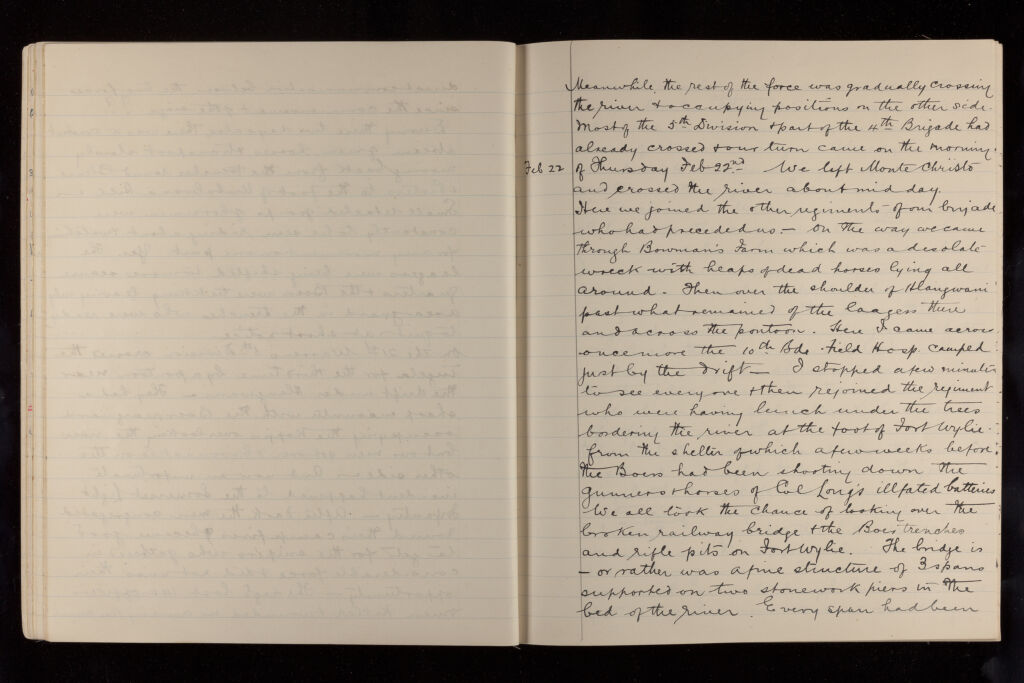 Meanwhile, the rest of the force was gradually crossing
the river & occupying positions on the other side.
Most of the 5th Division & part of the 4th Brigade had
already crossed & our turn came on the morning
Feb 22 of Thursday Feb 22nd. We left Monte Christo
and crossed the river about mid day.
Here we joined the other regiments of our brigade
who had preceded us. — On the way we came
through Bowman's Farm which was a desolate
wreck with heaps of dead horses lying all
around. Then over the shoulder of Hlangwani
past what remained of the laagers there
and across the pontoon. Here I came across
once more the 10th Bde Field Hosp. camped
just by the drift — I stopped a few minutes
to see everyone & then rejoined the regiment
who were having lunch under the trees
bordering the river at the foot of Fort Wylie.
from the shelter of which a few weeks before
the Boers had been shooting down the
gunners & horses of Col Long's illfated batteries
We all took the chance of looking over the
broken railway bridge & the Boer trenches
and rifle pits on Fort Wylie. The bridge is
— or rather was a fine structure of 3 spans
supported on two stonework piers in the
bed of the river. Every span had been